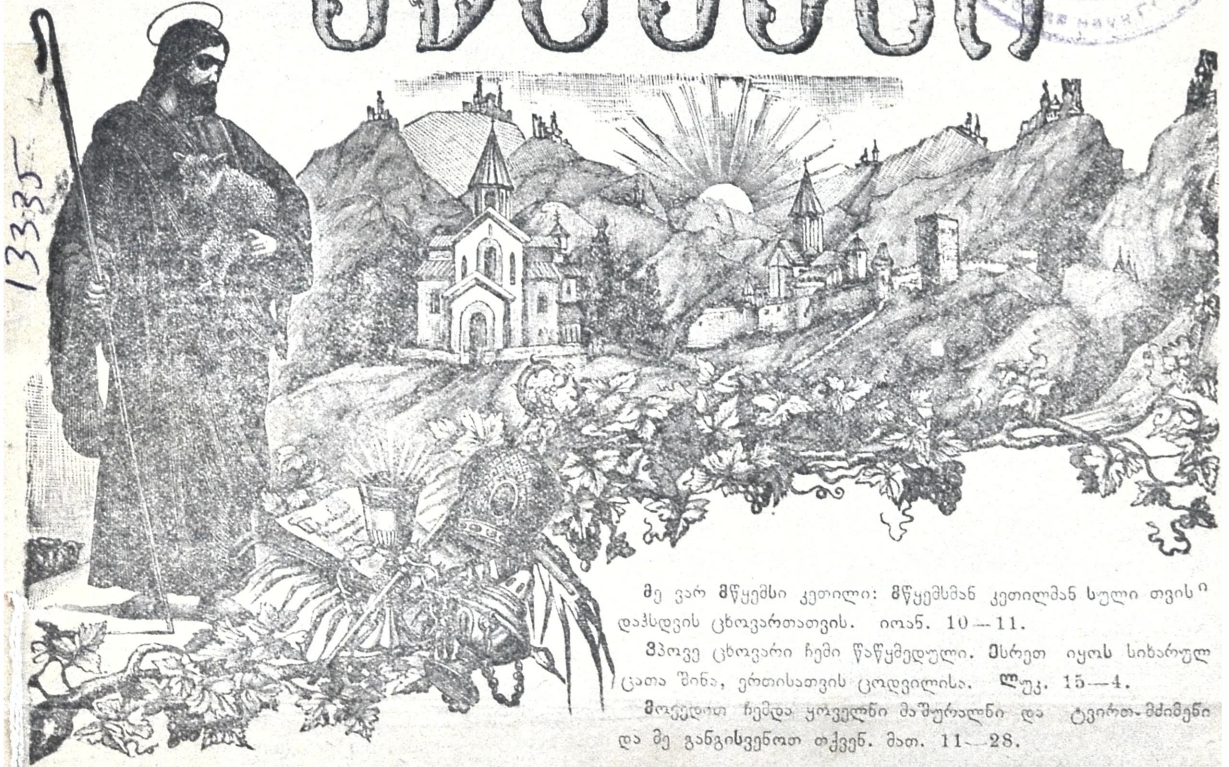 13335
მე ვარ მწყემსი კეთილი: მწყემსმან კეთილმან სული თვისი
დაჰსდვის ცხოვართათვის. იოან. 10—11.
ვპოვე ცხოვარი ჩემი წაწყმედული. ესრეთ იყოს სიხარულ
ცათა შინა, ერთისათვის ცოდვილისა. ლუკ. 15—4.
მოვედით ჩემდა ყოველნი მაშურალნი და ტვირთ-მძიმენი
და მე განგისვენოთ თქვენ. მათ. 11—28.